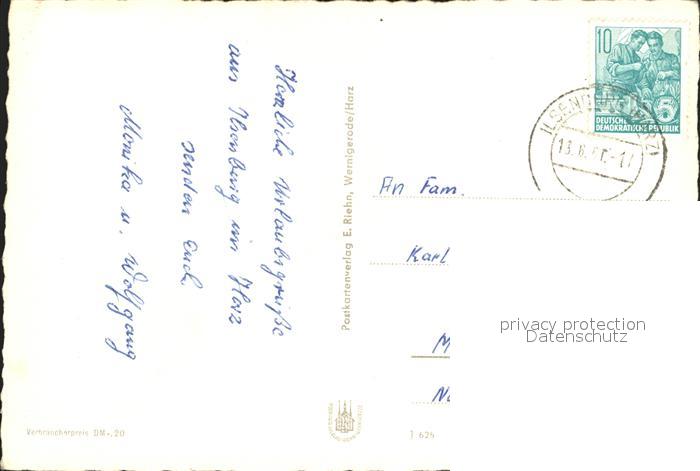 Herzliche Urlaubsgrüße
aus Ilsenburg im Harz
senden Euch
Monika u. Wolfgang
Postkartenverlag E. Riehn, Wernigerode/Harz
10
DEUTSCHE
DEMOKRATISCHE REPUBLIK
ILSENBURG (HARZ)
An Fam.
Karl
M
privacy protection
Datenschutz
Verbraucherpreis DM -,20
T 626